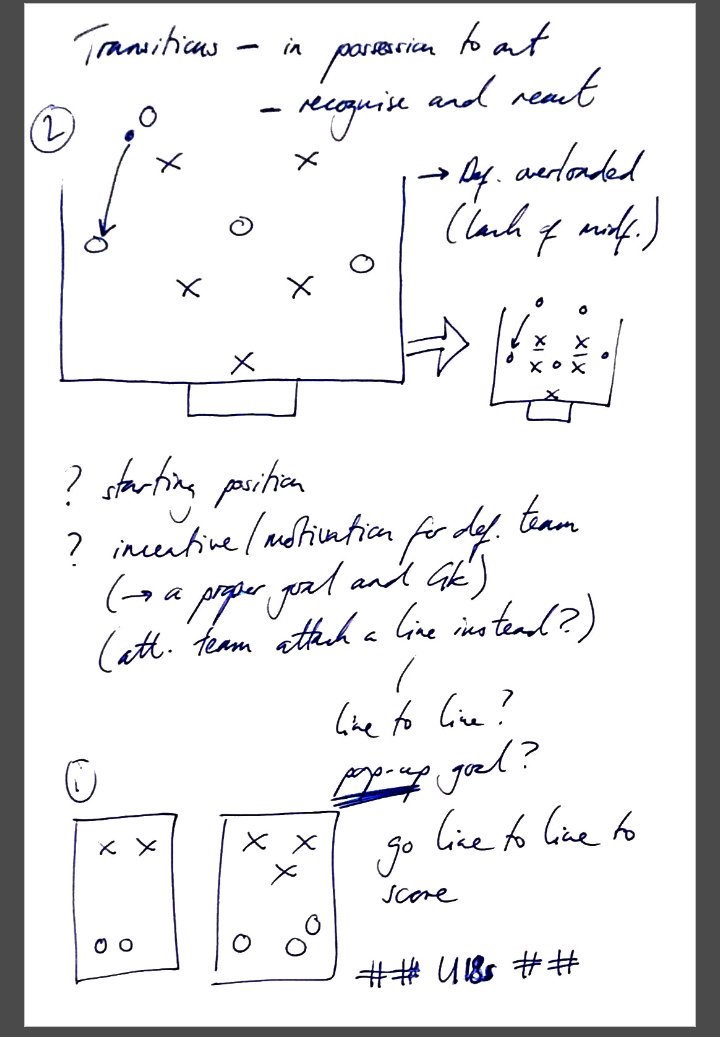 Transitions – in possession to out
– recognise and react
2
→ Def. overloaded
(lack of midf.)
? starting position
? incentive/motivation for def. team
(→ a proper goal and Gk)
(att. team attack a line instead?)
line to line?
pop-up goal?
1
go line to line to
score
## U18s ##